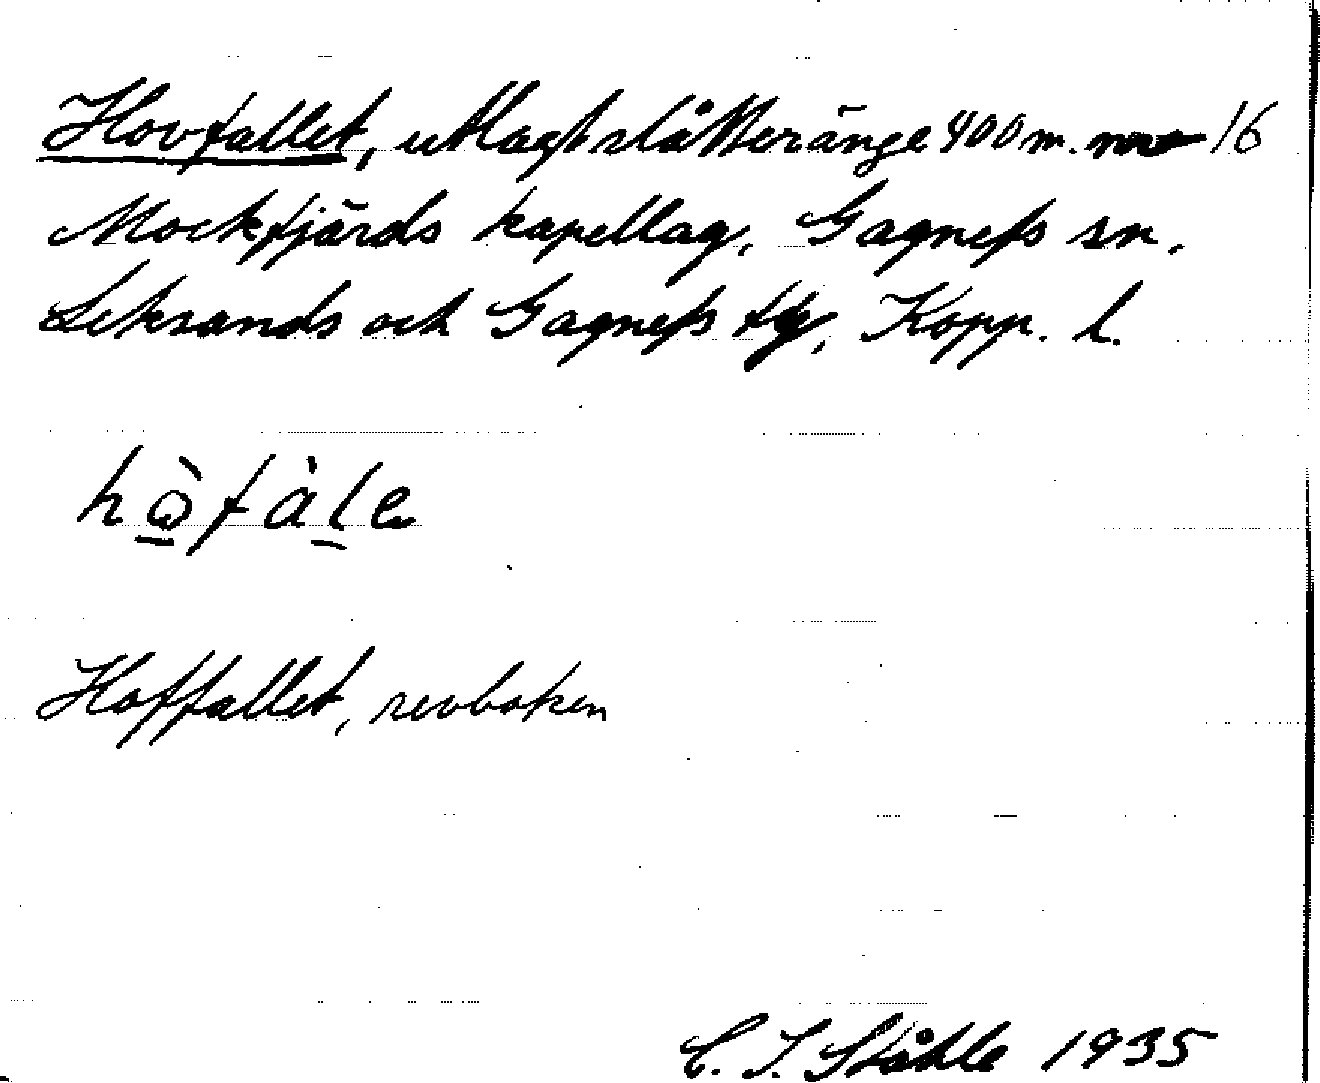 Hovfallet, utlagt slåtteränge 400 m. nno 16
Mockfjärds kapellag, Gagnefs sn.
Leksands och Gagnefs tg, Kopp. l.
hò̱fàḻe
Hoffallet, revboken
C. I. Ståhle 1935